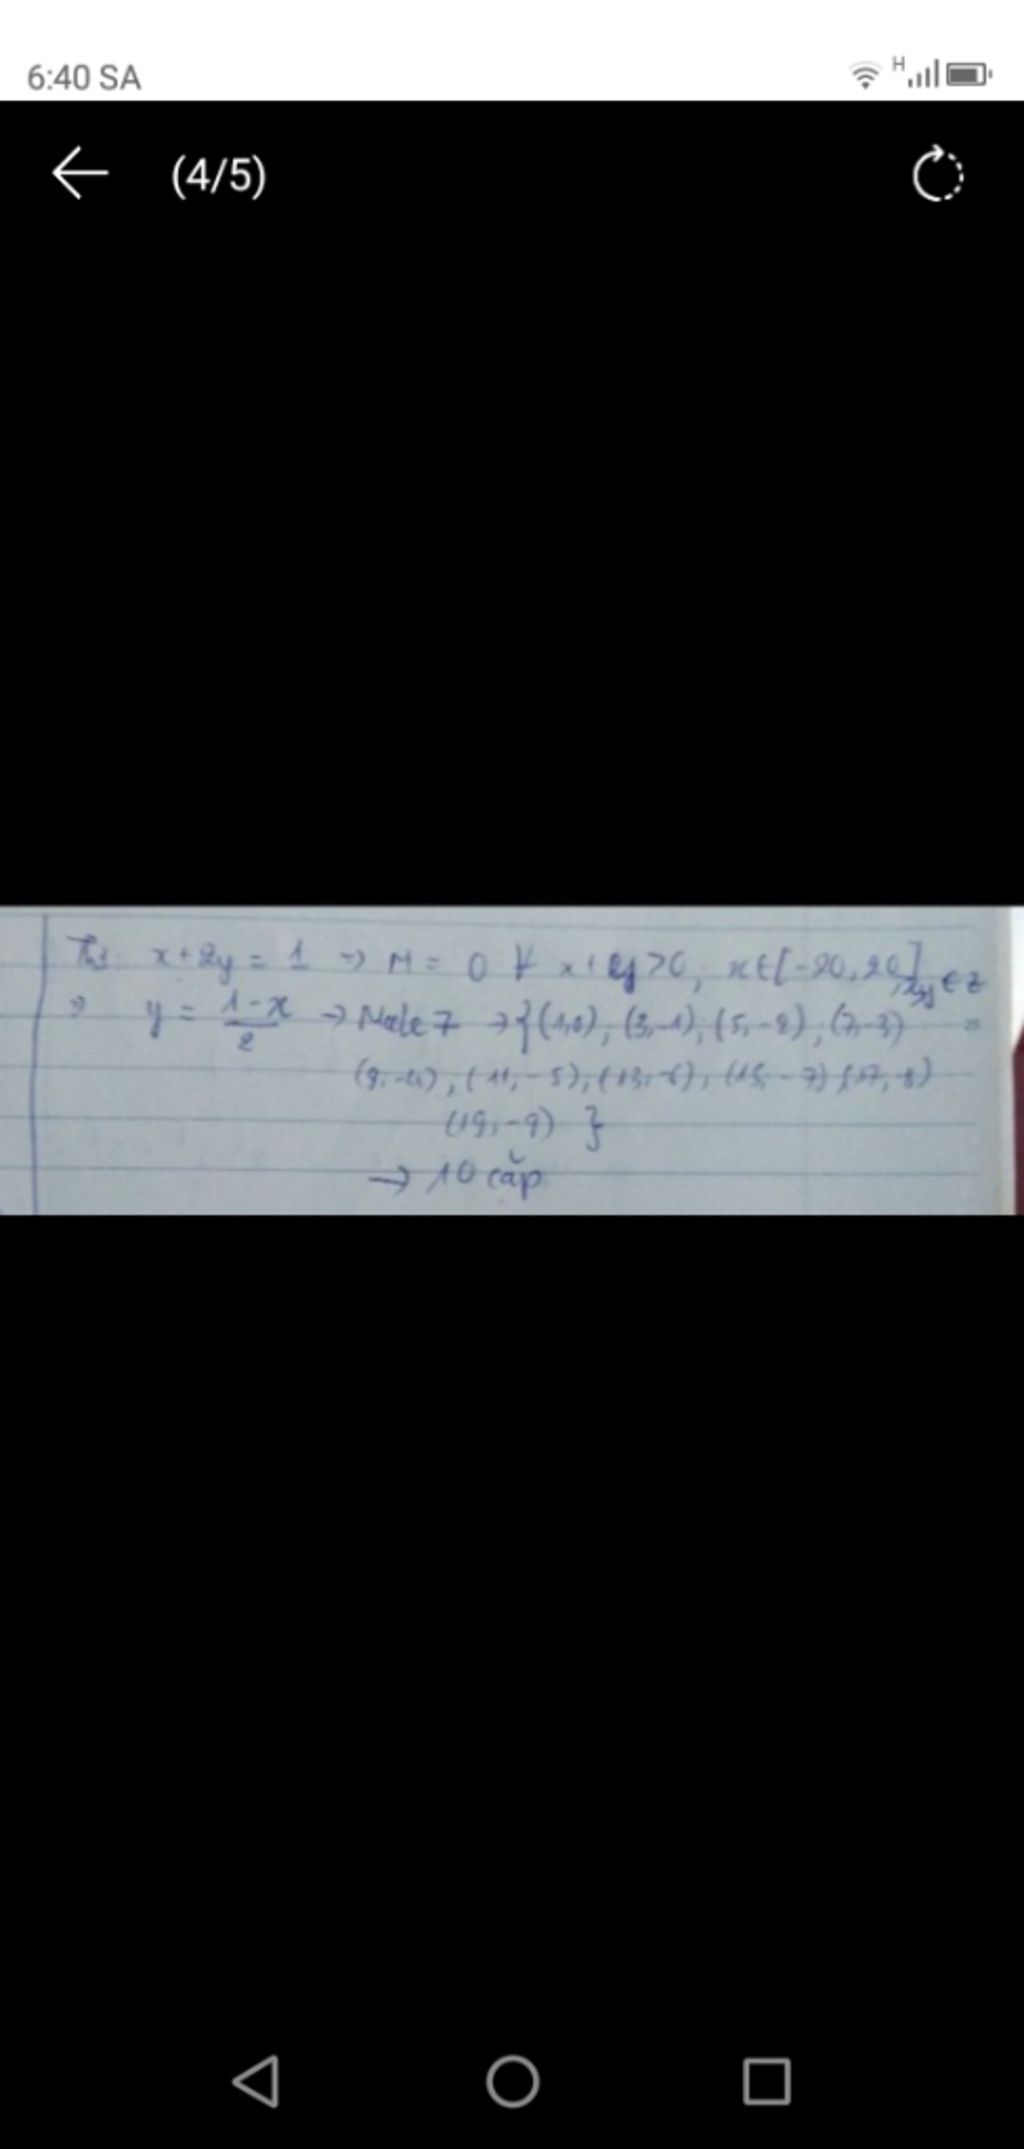 6:40 SA
H
(4/5)
Th1: x+2y = 1 → M = 0 ∀ x+y>0, x∈[-20,20], x,y ∈ Z
⇒ y = \frac{1-x}{2} → Mode 7 → {(1,0), (3,-1), (5,-2), (7,-3)
(9,-4), (11,-5), (13,-6), (15,-7), (17,-8)
(19,-9) }
→ 10 cặp